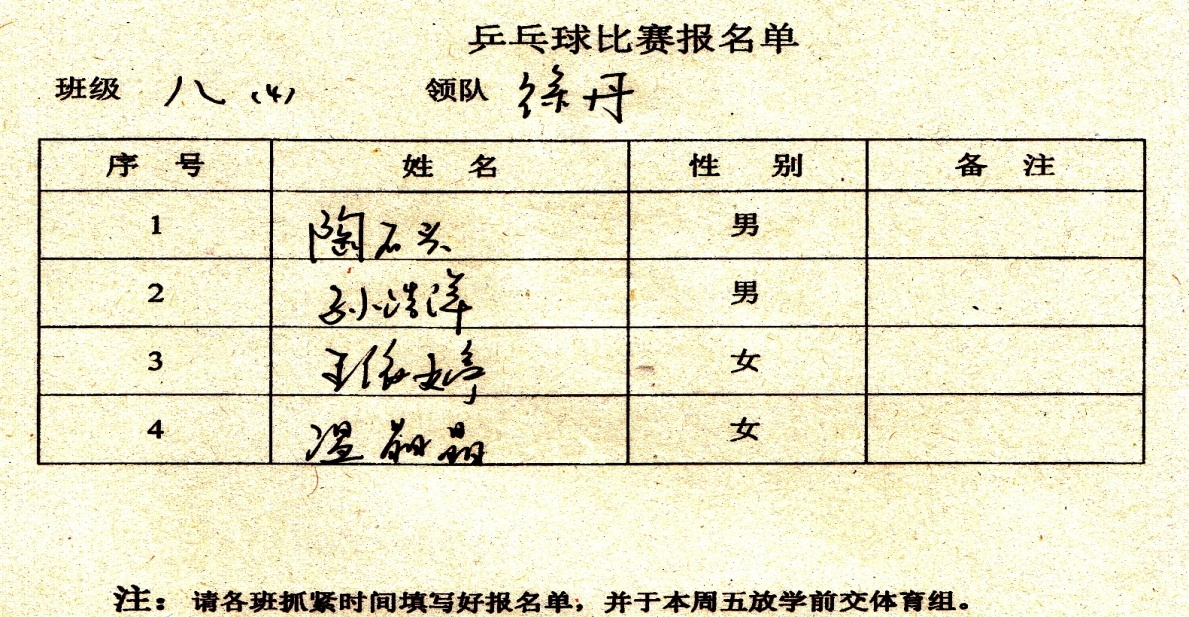 乒乓球比赛报名单
班级 八(4) 领队 徐丹
序号 姓名 性别 备注
1 陶石头 男
2 孙浩洋 男
3 王依婷 女
4 温 晶 女
注：请各班抓紧时间填写好报名单，并于本周五放学前交体育组。